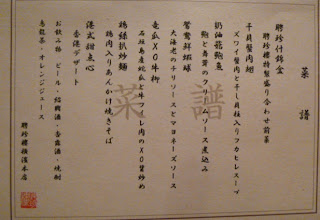 菜譜
聘珍付錦盒
聘珍樓特製盛り合わせ前菜
干貝蟹肉翅
ズワイ蟹肉と干し貝柱入りフカヒレスープ
奶油菇鮑魚
鮑と舞茸のクリームソース煮込み
鴛鴦鮮蝦球
大海老のチリソースとマヨネーズソース
竜瓜XO牛柳
石垣島産地瓜と牛フィレ肉のXO醤炒め
鶏絲扒炒麺
鶏肉入りあんかけ焼きそば
港式甜点心
香港デザート
お飲み物 ビール・紹興酒・杏露酒・焼酎
烏龍茶・オレンジジュース
聘珍樓横濱本店
菜譜